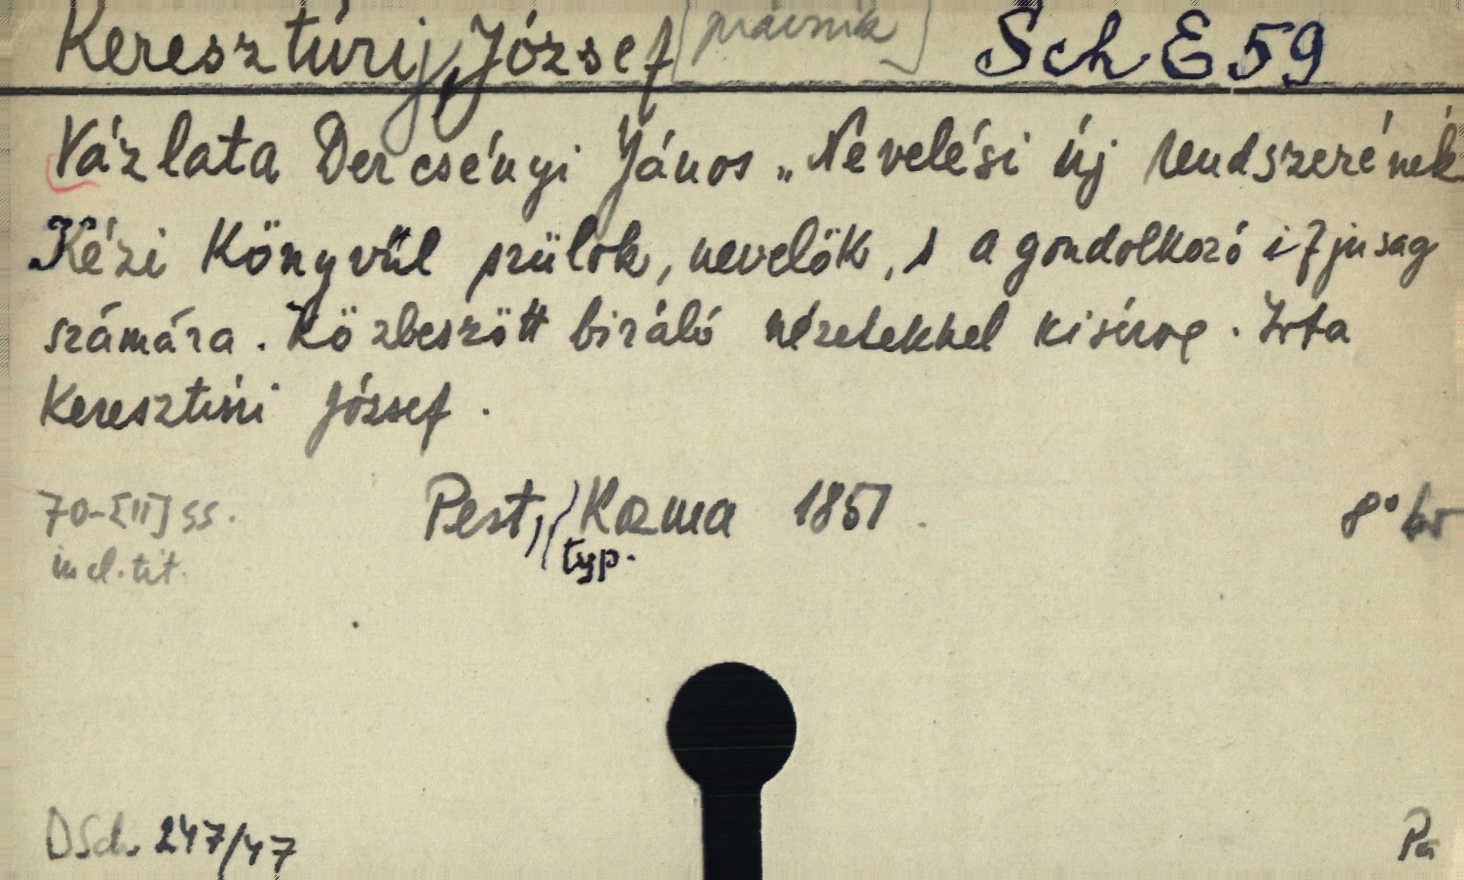 Keresztúrij, József [právnik] Sch E 59
Vázlata Dercsényi János „Nevelési új rendszerének
Kézi Könyvül szülök, nevelök, s a gondolkozó ifjusag
számára. Közbeszött biráló nézetekkel kisérve. Irta
Keresztúri József.
70-[II] ss. Pest, Kozma 1851. 8° br
incl. tit. typ.
DSch. 247/47 Pa